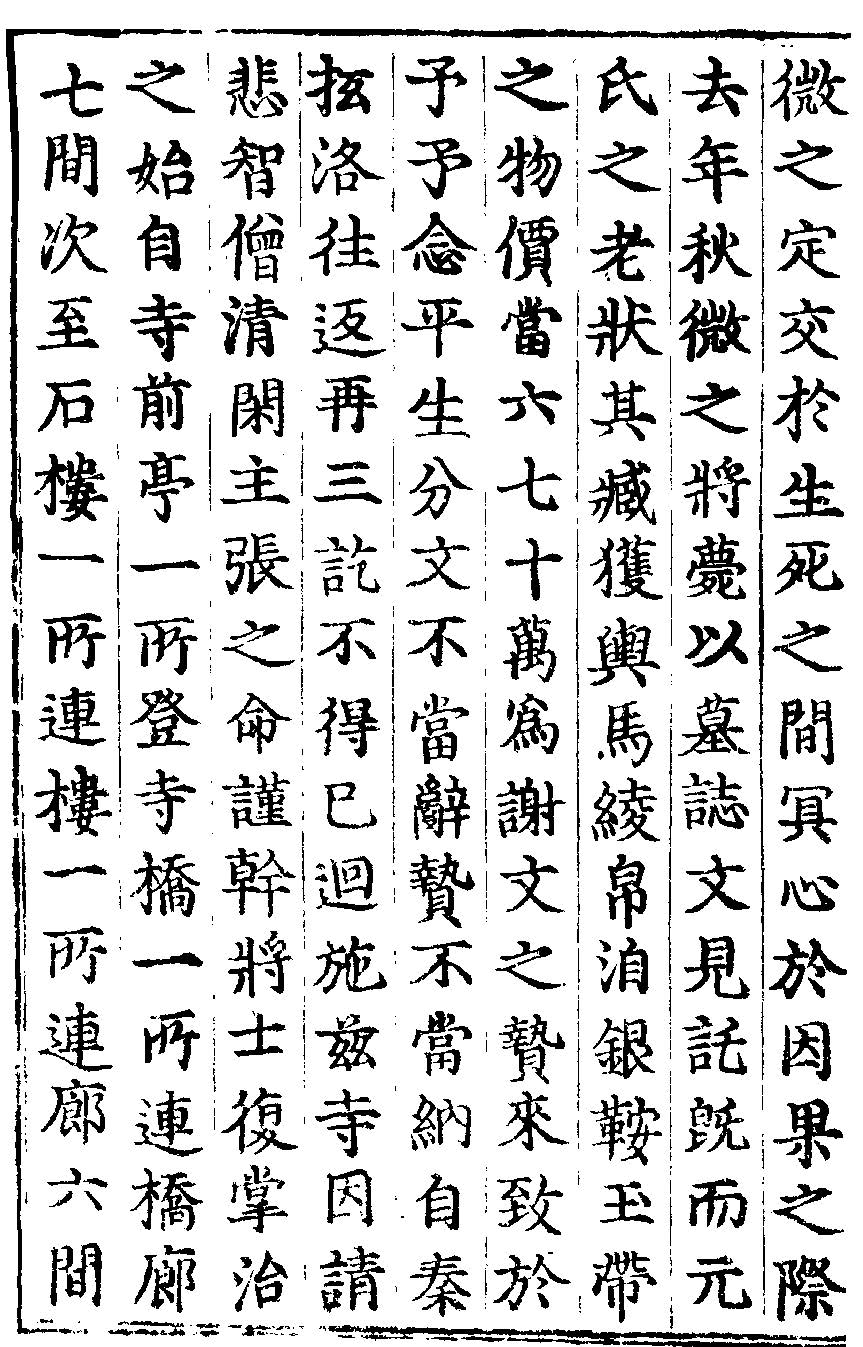 微之定交於生死之間冥心於因果之際
去年秋微之將薨以墓誌文見託旣而元
氏之老狀其臧獲輿馬綾帛洎銀鞍玉帶
之物價當六七十萬爲謝文之贄來致於
予予念平生分文不當辭贄不當納自秦
抵洛往返再三訖不得已迴施兹寺因請
悲智僧清閑主張之命謹幹將士復掌治
之始自寺前亭一所登寺橋一所連橋廊
七間次至石樓一所連樓一所連廊六間